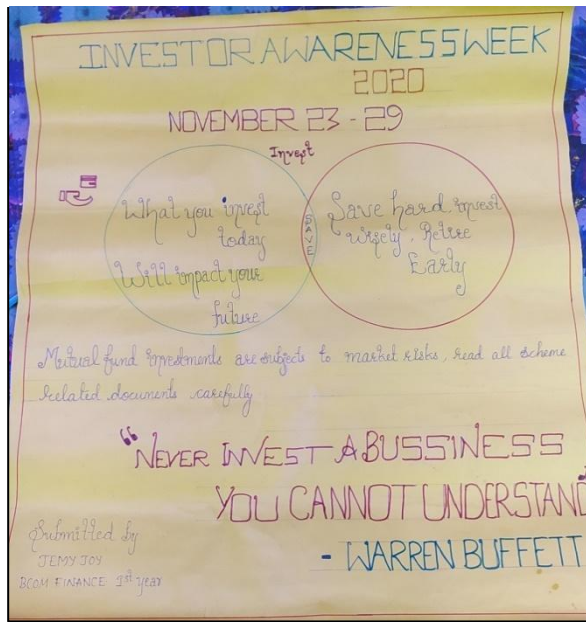 INVESTOR AWARENESS WEEK
2020
NOVEMBER 23 - 29
Invest
What you invest
today
Will impact your
future
SAVE
Save hard, invest
wisely. Retire
Early
Mutual fund investments are subjects to market risks, read all scheme
Related documents carefully
"NEVER INVEST A BUSSINESS
YOU CANNOT UNDERSTAND"
- WARREN BUFFETT
Submitted by
JEMY JOY
BCOM FINANCE 1st Year